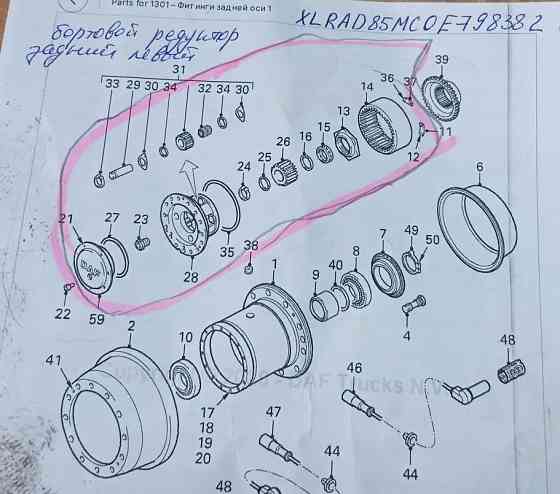 Parts for 1301 – Фитинги задней оси 1
XLRAD85MC0E798382
бортовой редуктор
задний левый
31
33 29 30 34 32 34 30
36 37 39
14
13
11
12
15
16
26
25
24
6
21 27 23
35
28
38
22
59
1
2
10
9 40 8 7 49 50
4
41
17
18
19
20
DAF Trucks N.V.
46
48
47
44
44
48